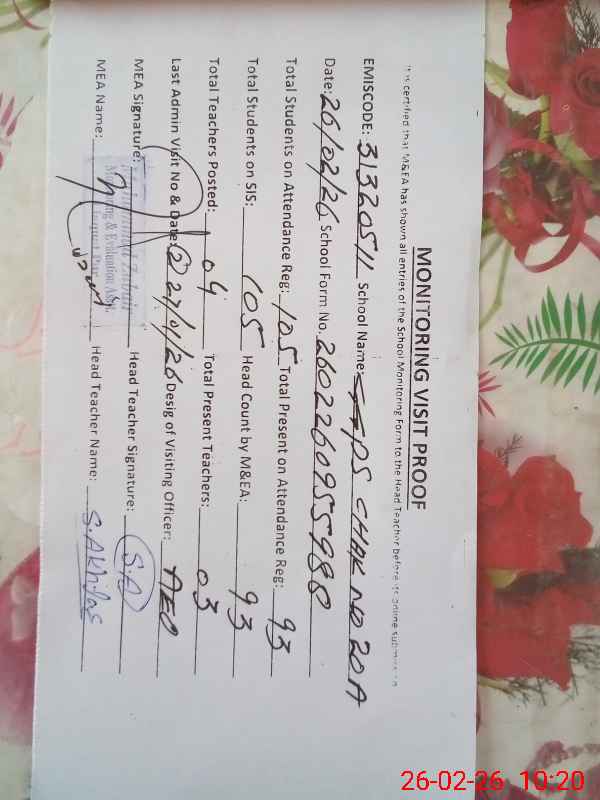 MONITORING VISIT PROOF
It is certified that M&EA has shown all entries of the School Monitoring Form to the Head Teacher before its online submission
EMISCODE: 31320511 School Name: GPS CHAK NO 20A
Date: 26/02/26 School Form No. 260226095598 8
Total Students on Attendance Reg: 105 Total Present on Attendance Reg: 93
Total Students on SIS: 105 Head Count by M&EA: 93
Total Teachers Posted: 04 Total Present Teachers: 03
Last Admin Visit No & Date: 2 27/01/26 Desig of Visiting Officer: AEO
MEA Signature: Head Teacher Signature: S.A
Muhammad Zubair
Monitoring & Evaluation Asstt.
MEA Name: Head Teacher Name: S.Akhlas
26-02-26 10:20